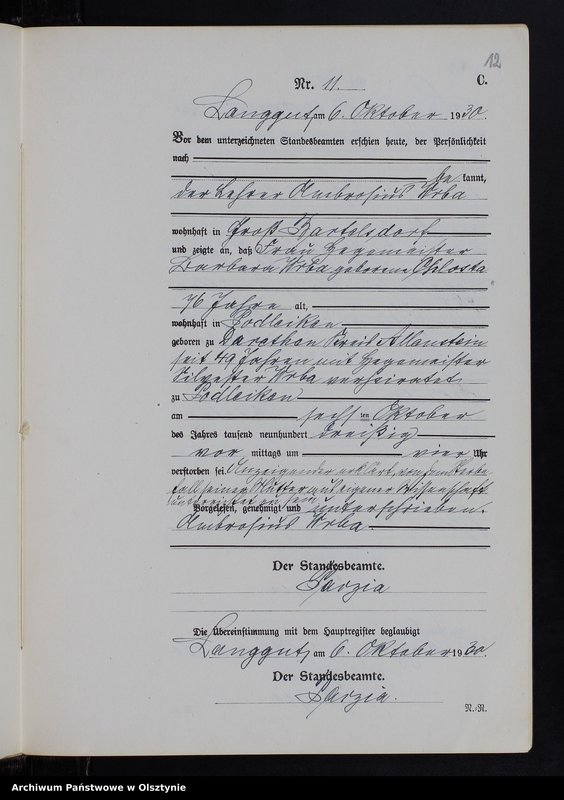 12
Nr. 11. C.
Langgut, am 6. Oktober 1930.
Vor dem unterzeichneten Standesbeamten erschien heute, der Persönlichkeit
nach
be kannt,
der Lehrer Ambrosius Wrba
wohnhaft in Groß Bartelsdorf
und zeigte an, daß Frau Hegemeister
Barbara Wrba geborene Chlosta
76 Jahre alt,
wohnhaft in Podleiken
geboren zu Darethen Kreis Allenstein
seit 49 Jahren mit Hegemeister
Silvester Wrba verheiratet
zu Podleiken
am sechsten Oktober
des Jahres tausend neunhundert dreißig
vor mittags um vier Uhr
verstorben sei. Anzeigender erklärt, von dem Sterbe
fall seiner Mutter aus eigener Wissenschaft
unterrichtet zu sein
Vorgelesen, genehmigt und unterschrieben.
Ambrosius Wrba
Der Standesbeamte.
Die Übereinstimmung mit dem Hauptregister beglaubigt
Langgut, am 6. Oktober 1930.
Der Standesbeamte.
N.-N.
Archiwum Państwowe w Olsztynie